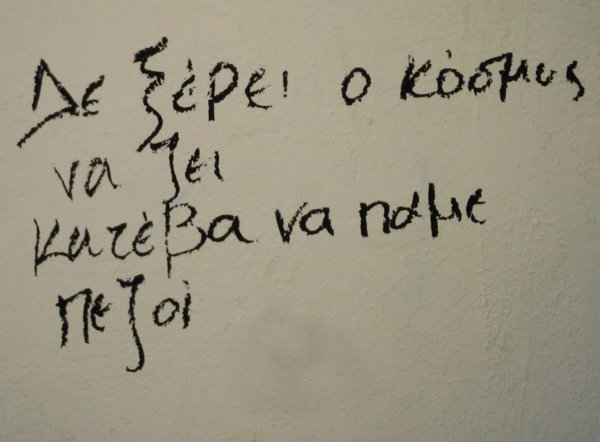 Δε ξέρει ο κόσμος
να ζει
κατέβα να πάμε
πεζοί